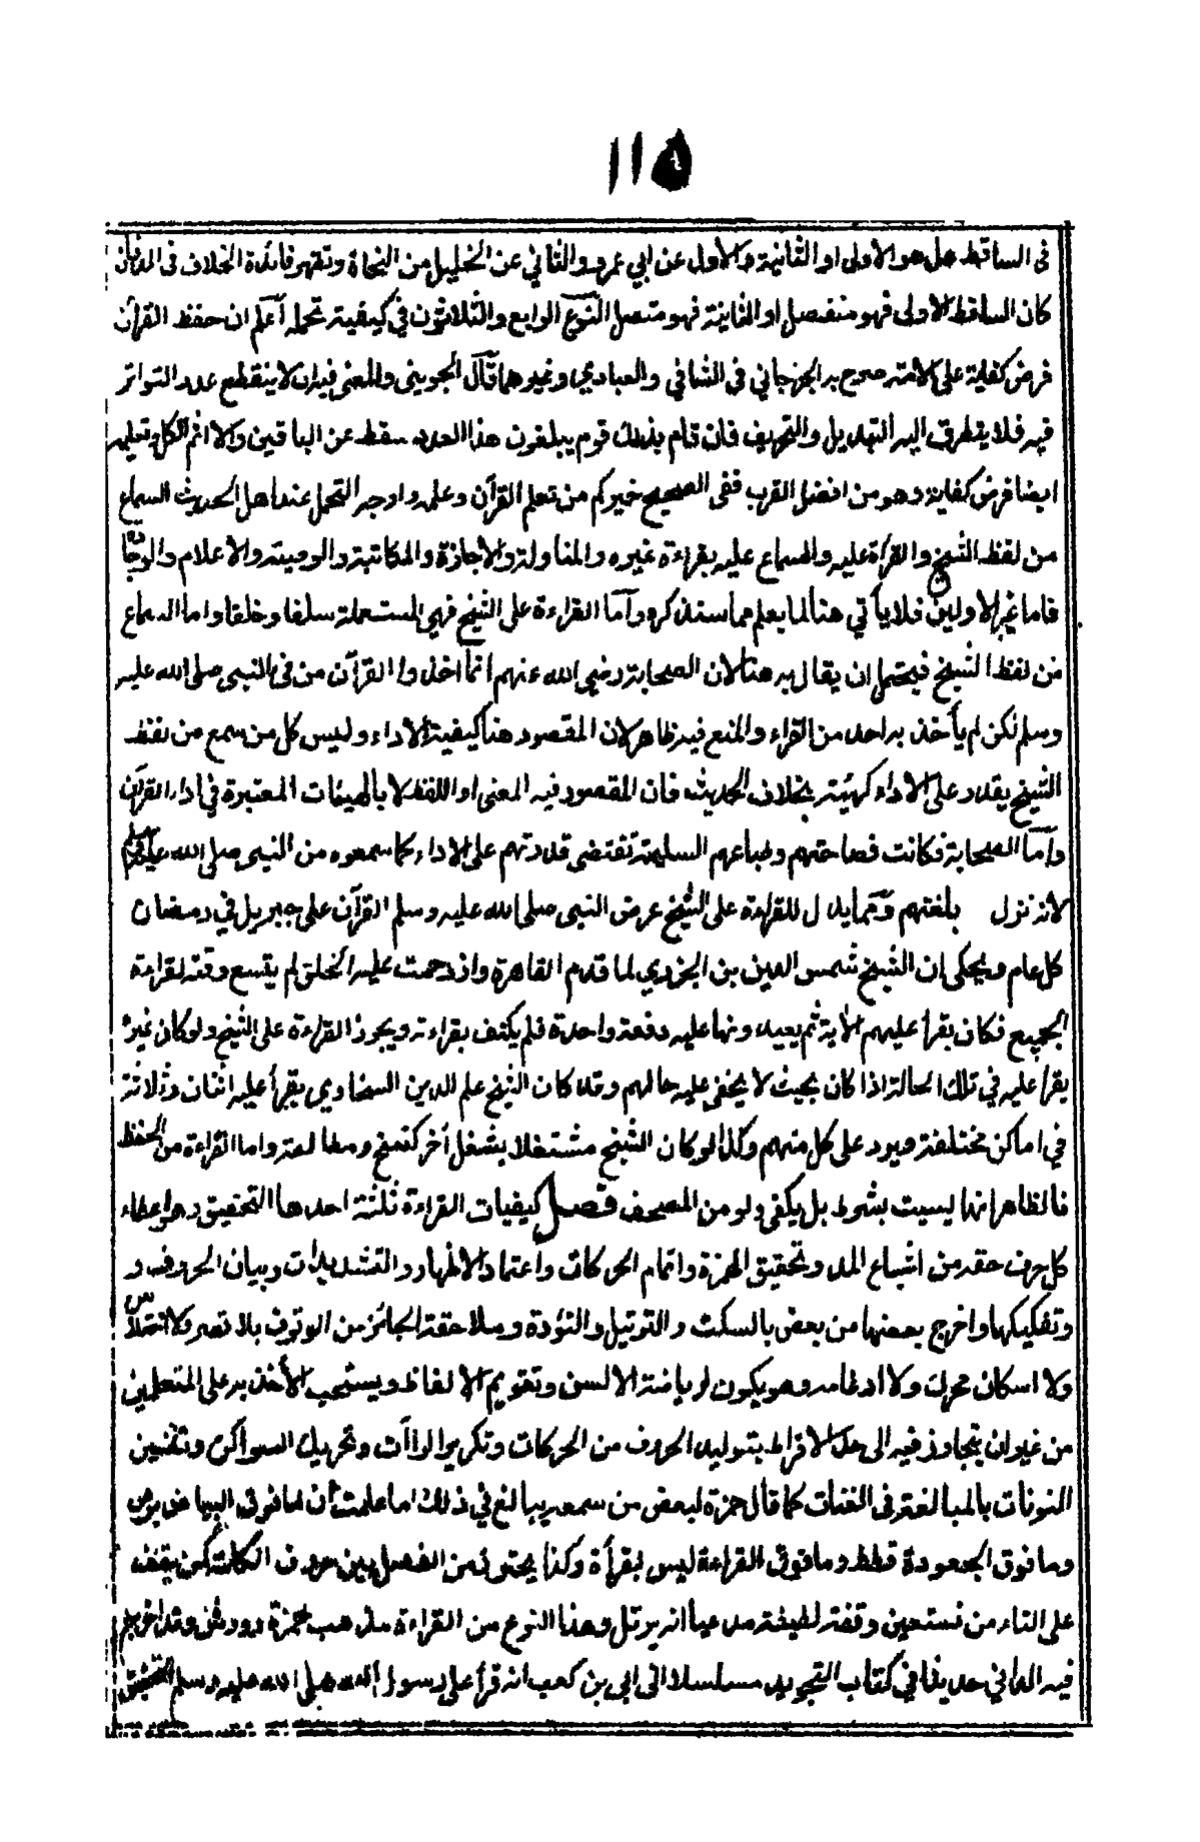 ١١٥
فى الساقط هل هو الاولى او الثانية والاول عن ابي عمرو والثاني عن الخليل من النحاة وتظهر فائدة الخلاف فى المد فان
كان الساقط الاولى فهو منفصل او الثانية فهو متصل النوع الرابع والثلاثون في كيفية تحمله اعلم ان حفظ القرآن
فرض كفاية على الامة صرح به الجرجاني فى الشافي والعبادي وغيرهما قال الجوينى والمعنى فيه ان لا ينقطع عدد التواتر
فيه فلا يتطرق اليه التبديل والتحريف فان قام بذلك قوم يبلغون هذا العدد سقط عن الباقين والا اثم الكل وتعليمه
ايضا فرض كفاية وهو من افضل القرب ففى الصحيح خيركم من تعلم القرآن وعلمه واوجه التحمل عند اهل الحديث السماع
من لفظ الشيخ والقراءة عليه والسماع عليه بقراءة غيره والمناولة والاجازة والمكاتبة والوصية والاعلام والوجادة
فاما غير الاولين فلا يأتي هنا لما يعلم مما سنذكره وأما القراءة على الشيخ فهي المستعملة سلفا وخلفا واما السماع
من لفظ الشيخ فيحتمل ان يقال به هنا لان الصحابة رضي الله عنهم انما اخذوا القرآن من فى النبى صلى الله عليه
وسلم لكن لم يأخذ به احد من القراء والمنع فيه ظاهر لان المقصود هنا كيفية الاداء وليس كل من سمع من لفظ
الشيخ يقدر على الاداء كهيئته بخلاف الحديث فان المقصود فيه المعنى او اللفظ لا بالهيئات المعتبرة في اداء القرآن
وأما الصحابة فكانت فصاحتهم وطباعهم السليمة تقتضى قدرتهم على الاداء كما سمعوه من النبى صلى الله عليه وسلم
لانه نزل بلغتهم ومما يدل للقراءة على الشيخ عرض النبى صلى الله عليه وسلم القرآن على جبريل في رمضان
كل عام ويحكى ان الشيخ شمس الدين بن الجزري لما قدم القاهرة وازدحمت عليه الخلق لم يتسع وقته لقراءة
الجميع فكان يقرأ عليهم الأية ثم يعيدونها عليه دفعة واحدة فلم يكتف بقراءته ويجوز القراءة على الشيخ ولو كان غيره
يقرا عليه في تلك الحالة اذا كان بحيث لا يخفى عليه حالهم وقد كان الشيخ علم الدين السخاوي يقرأ عليه اثنان وثلاثة
في اماكن مختلفة ويرد على كل منهم وكذا لو كان الشيخ مشتغلا بشغل آخر كنسخ ومطالعة واما القراءة من الحفظ
فالظاهر انها ليست بشرط بل يكفى ولو من المصحف فصل كيفيات القراءة ثلثة احدها التحقيق وهو اعطاء
كل حرف حقه من اشباع المد وتحقيق الهمزة واتمام الحركات واعتماد الاظهار والتشديدات وبيان الحروف و
وتفكيكها واخرج بعضها من بعض بالسكت والترتيل والتؤدة وملاحقة الجائز من الوقوف بلا قصر ولا اختلاس
ولا اسكان محرك ولا ادغامه وهو يكون لرياضة الالسن وتقويم الالفاظ ويستحب الأخذ به على المتعلمين
من غير ان يتجاوز فيه الى حد الافراط بتوليد الحروف من الحركات وتكرير الراآت وتحريك السواكن وتطنين
النونات بالمبالغة فى الغنات كما قال حمزة لبعض من سمعه يبالغ في ذلك اما علمت أن ما فوق البياض برص
وما فوق الجعودة قطط وما فوق القراءة ليس بقرأة وكذا يحترز من الفصل بين حروف الكلمة كمن يقف
على التاء من نستعين وقفة لطيفة مدعيا انه يرتل وهذا النوع من القراءة مذهب حمزة وورش وقد اخرج
فيه الداني حديثا في كتاب التجويد مسلسلا الى ابي بن كعب انه قرأ على رسول الله صلى الله عليه وسلم التحقيق